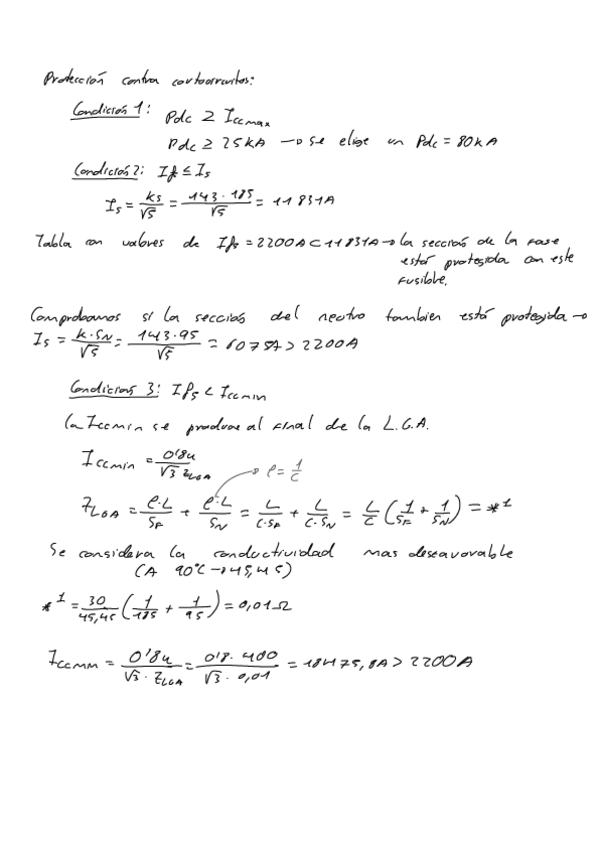 Protección contra cortocircuitos:
Condición 1: Pdc ≥ Iccmax
Pdc ≥ 25kA → se elige un Pdc = 80kA
Condición 2: If ≤ Is
Is = ks/√5 = 143·185/√5 = 11831A
Tabla con valores de If5 = 2200A < 11831A → la sección de la fase
está protegida con este
fusible.
Comprobamos si la sección del neutro también está protegida →
Is = k·SN/√5 = 143·95/√5 = 6075A > 2200A
Condición 3: If5 < Iccmin
La Iccmin se produce al final de la L.G.A.
Iccmin = 0'8u/√3 ZLGA → ρ = 1/C
ZLGA = ρ·L/SF + ρ·L/SN = L/C·SF + L/C·SN = L/C (1/SF + 1/SN) = *1
Se considera la conductividad mas desfavorable
(A 90°C → 45,45)
*1 = 30/45,45 (1/185 + 1/95) = 0,01Ω
Iccmin = 0'8u/√3·ZLGA = 0'8·400/√3·0,01 = 18475,8A > 2200A